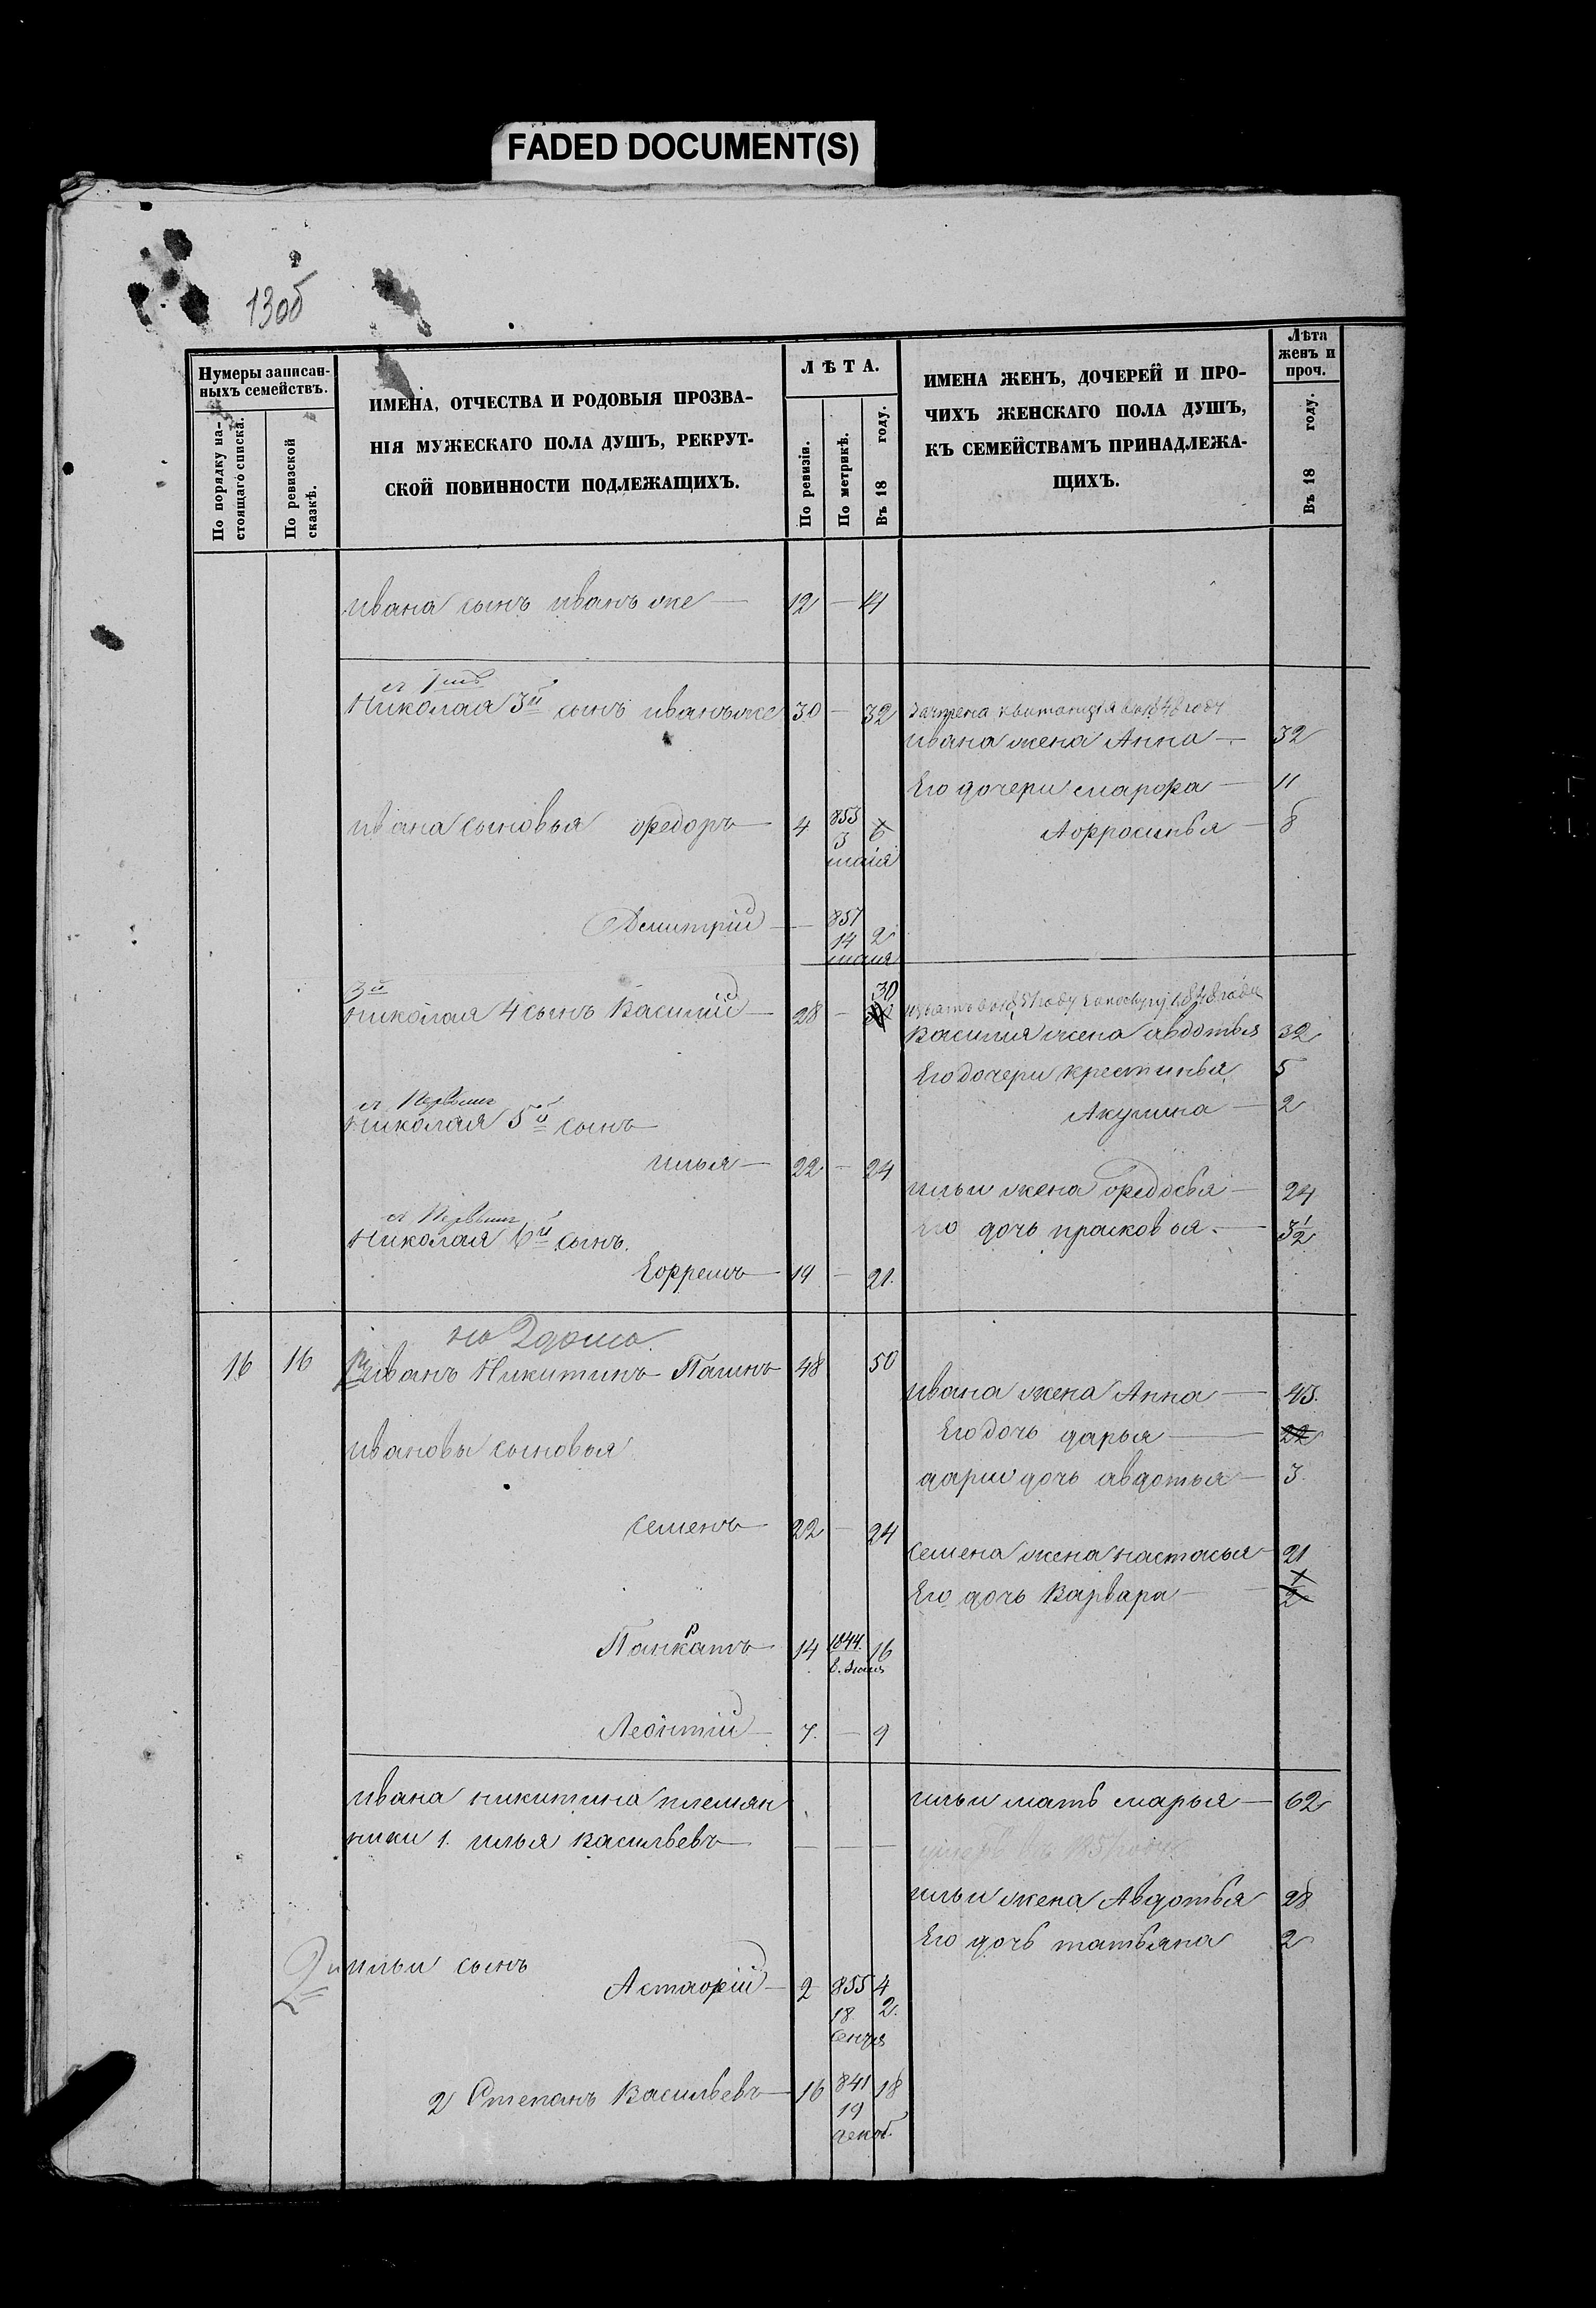 FADED DOCUMENT(S)
13об
Нумеры записан-
ныхъ семействъ.
По порядку на-
стоящаго списка.
По ревизской
сказкѣ.
ИМЕНА, ОТЧЕСТВА И РОДОВЫЯ ПРОЗВА-
НІЯ МУЖЕСКАГО ПОЛА ДУШЪ, РЕКРУТ-
СКОЙ ПОВИННОСТИ ПОДЛЕЖАЩИХЪ.
ЛѢТА.
По ревизіи.
По метрикѣ.
Въ 18 году.
ИМЕНА ЖЕНЪ, ДОЧЕРЕЙ И ПРО-
ЧИХЪ ЖЕНСКАГО ПОЛА ДУШЪ,
КЪ СЕМЕЙСТВАМЪ ПРИНАДЛЕЖА-
ЩИХЪ.
Лѣта
женъ и
проч.
Въ 18 году.
ивана сынъ иванъ же — 12 — 14
Николая 3й сынъ иванъ же 30 — 32 квитанція 1848 году
ивана жена Анна — 32
Его дочери марфа — 11
ивана сыновья федоръ — 4 853 6 Афросинья — 8
3
маія
Дмитрій — 857
14 2
маия
3й 30
Николая 4 сынъ Василій — 28 —
Василия жена авдотья 32
Его дочери крестинья 5
с Первымъ
Николая 5й сынъ Акулина — 2
илья — 22 — 24
ильи жена федосья — 24
с Первымъ
Николая 6й сынъ. Его дочь прасковья. — 3½
Ефремъ — 19 — 21.
на 2 дома.
16 16 иванъ Никитинъ Пашнъ 48 50
ивана жена Анна — 43.
ивановы сыновья Его дочь дарья — 22
дарьи дочь авдотья — 3.
семенъ — 22 — 24
семена жена настасья — 21
Его дочь Варвара —
Панкратъ — 14 1844. 16
Леонтій — 7. — 9
ивана никитина племян ильи мать марья — 62
ники 1. илья васильевъ — — —
ильи жена Авдотья 28
Его дочь татьяна 2
2й ильи сынъ
Астафій — 2 855 4
18. 2.
сентя
2 Степанъ Васильевъ — 16 841 18
19
декаб.